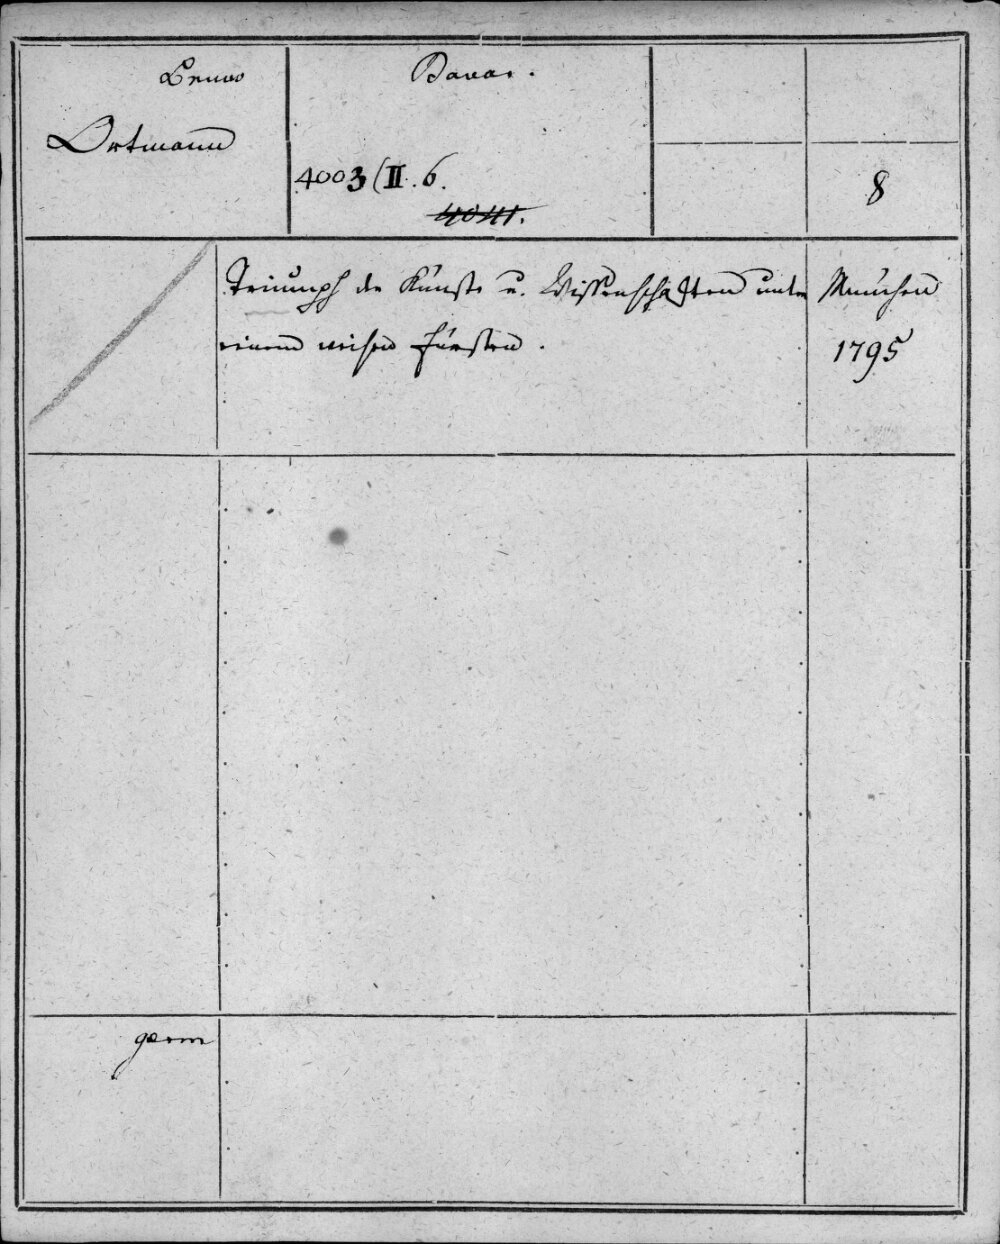 Benno
Ortmann
Bavar.
4003 (II. 6.
4041.
8
Triumph der Künste u. Wissenschaften unter
einem weisen Fürsten.
München
1795
germ